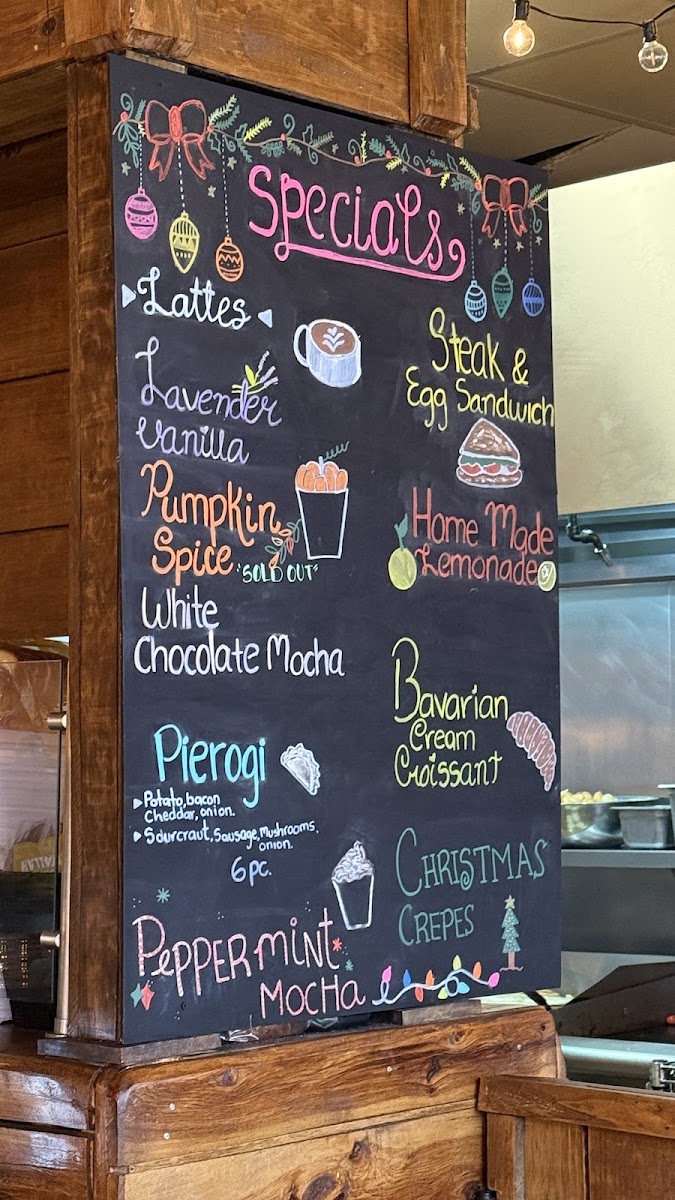 Specials
Lattes
Lavender
Vanilla
Pumpkin
Spice "SOLD OUT"
White
Chocolate Mocha
Pierogi
Potato, bacon
Cheddar, onion.
Sourcraut, Sausage, Mushrooms,
onion.
6 pc.
Peppermint
Mocha
Steak &
Egg Sandwich
Home Made
Lemonade
Bavarian
Cream
Croissant
Christmas
Crepes